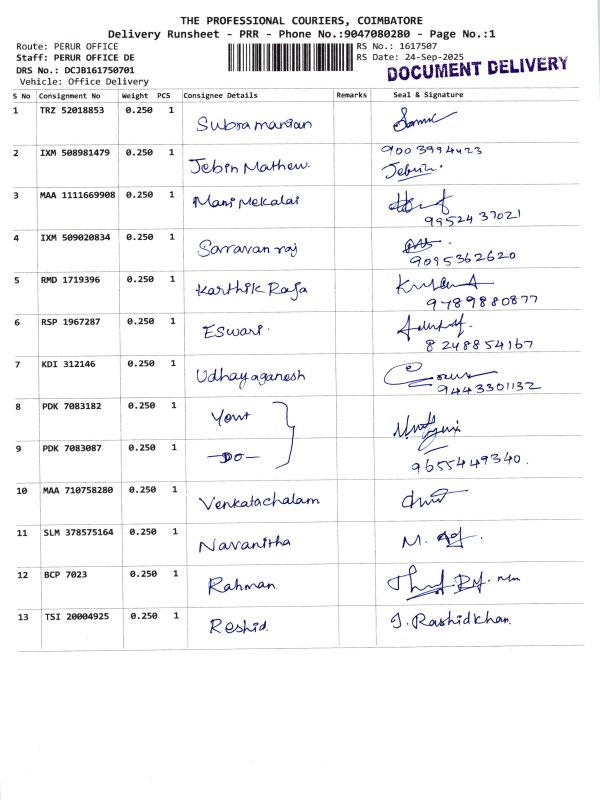 THE PROFESSIONAL COURIERS, COIMBATORE
Delivery Runsheet - PRR - Phone No.:9047080280 - Page No.:1
Route: PERUR OFFICE RS No.: 1617507
Staff: PERUR OFFICE DE RS Date: 24-Sep-2025
DRS No.: DCJB161750701 DOCUMENT DELIVERY
Vehicle: Office Delivery
S No Consignment No Weight PCS Consignee Details Remarks Seal & Signature
1 TRZ 52018853 0.250 1 Subramanian
2 IXM 508981479 0.250 1 Jebin Mathew. 9003994423
Jebin.
3 MAA 1111669908 0.250 1 Mani Mekalai
9952437021
4 IXM 509020834 0.250 1 Sarravan raj
9095362620
5 RMD 1719396 0.250 1 Karthik Raja
9789880877
6 RSP 1967287 0.250 1 Eswari.
8248854167
7 KDI 312146 0.250 1 Udhayaganesh
9443301132
8 PDK 7083182 0.250 1
9 PDK 7083087 0.250 1 -DO-
9655449340.
10 MAA 710758280 0.250 1 Venkatachalam
11 SLM 378575164 0.250 1 Navanitha M.
12 BCP 7023 0.250 1 Rahman.
13 TSI 20004925 0.250 1 Reshid. J. Rashidkhan.